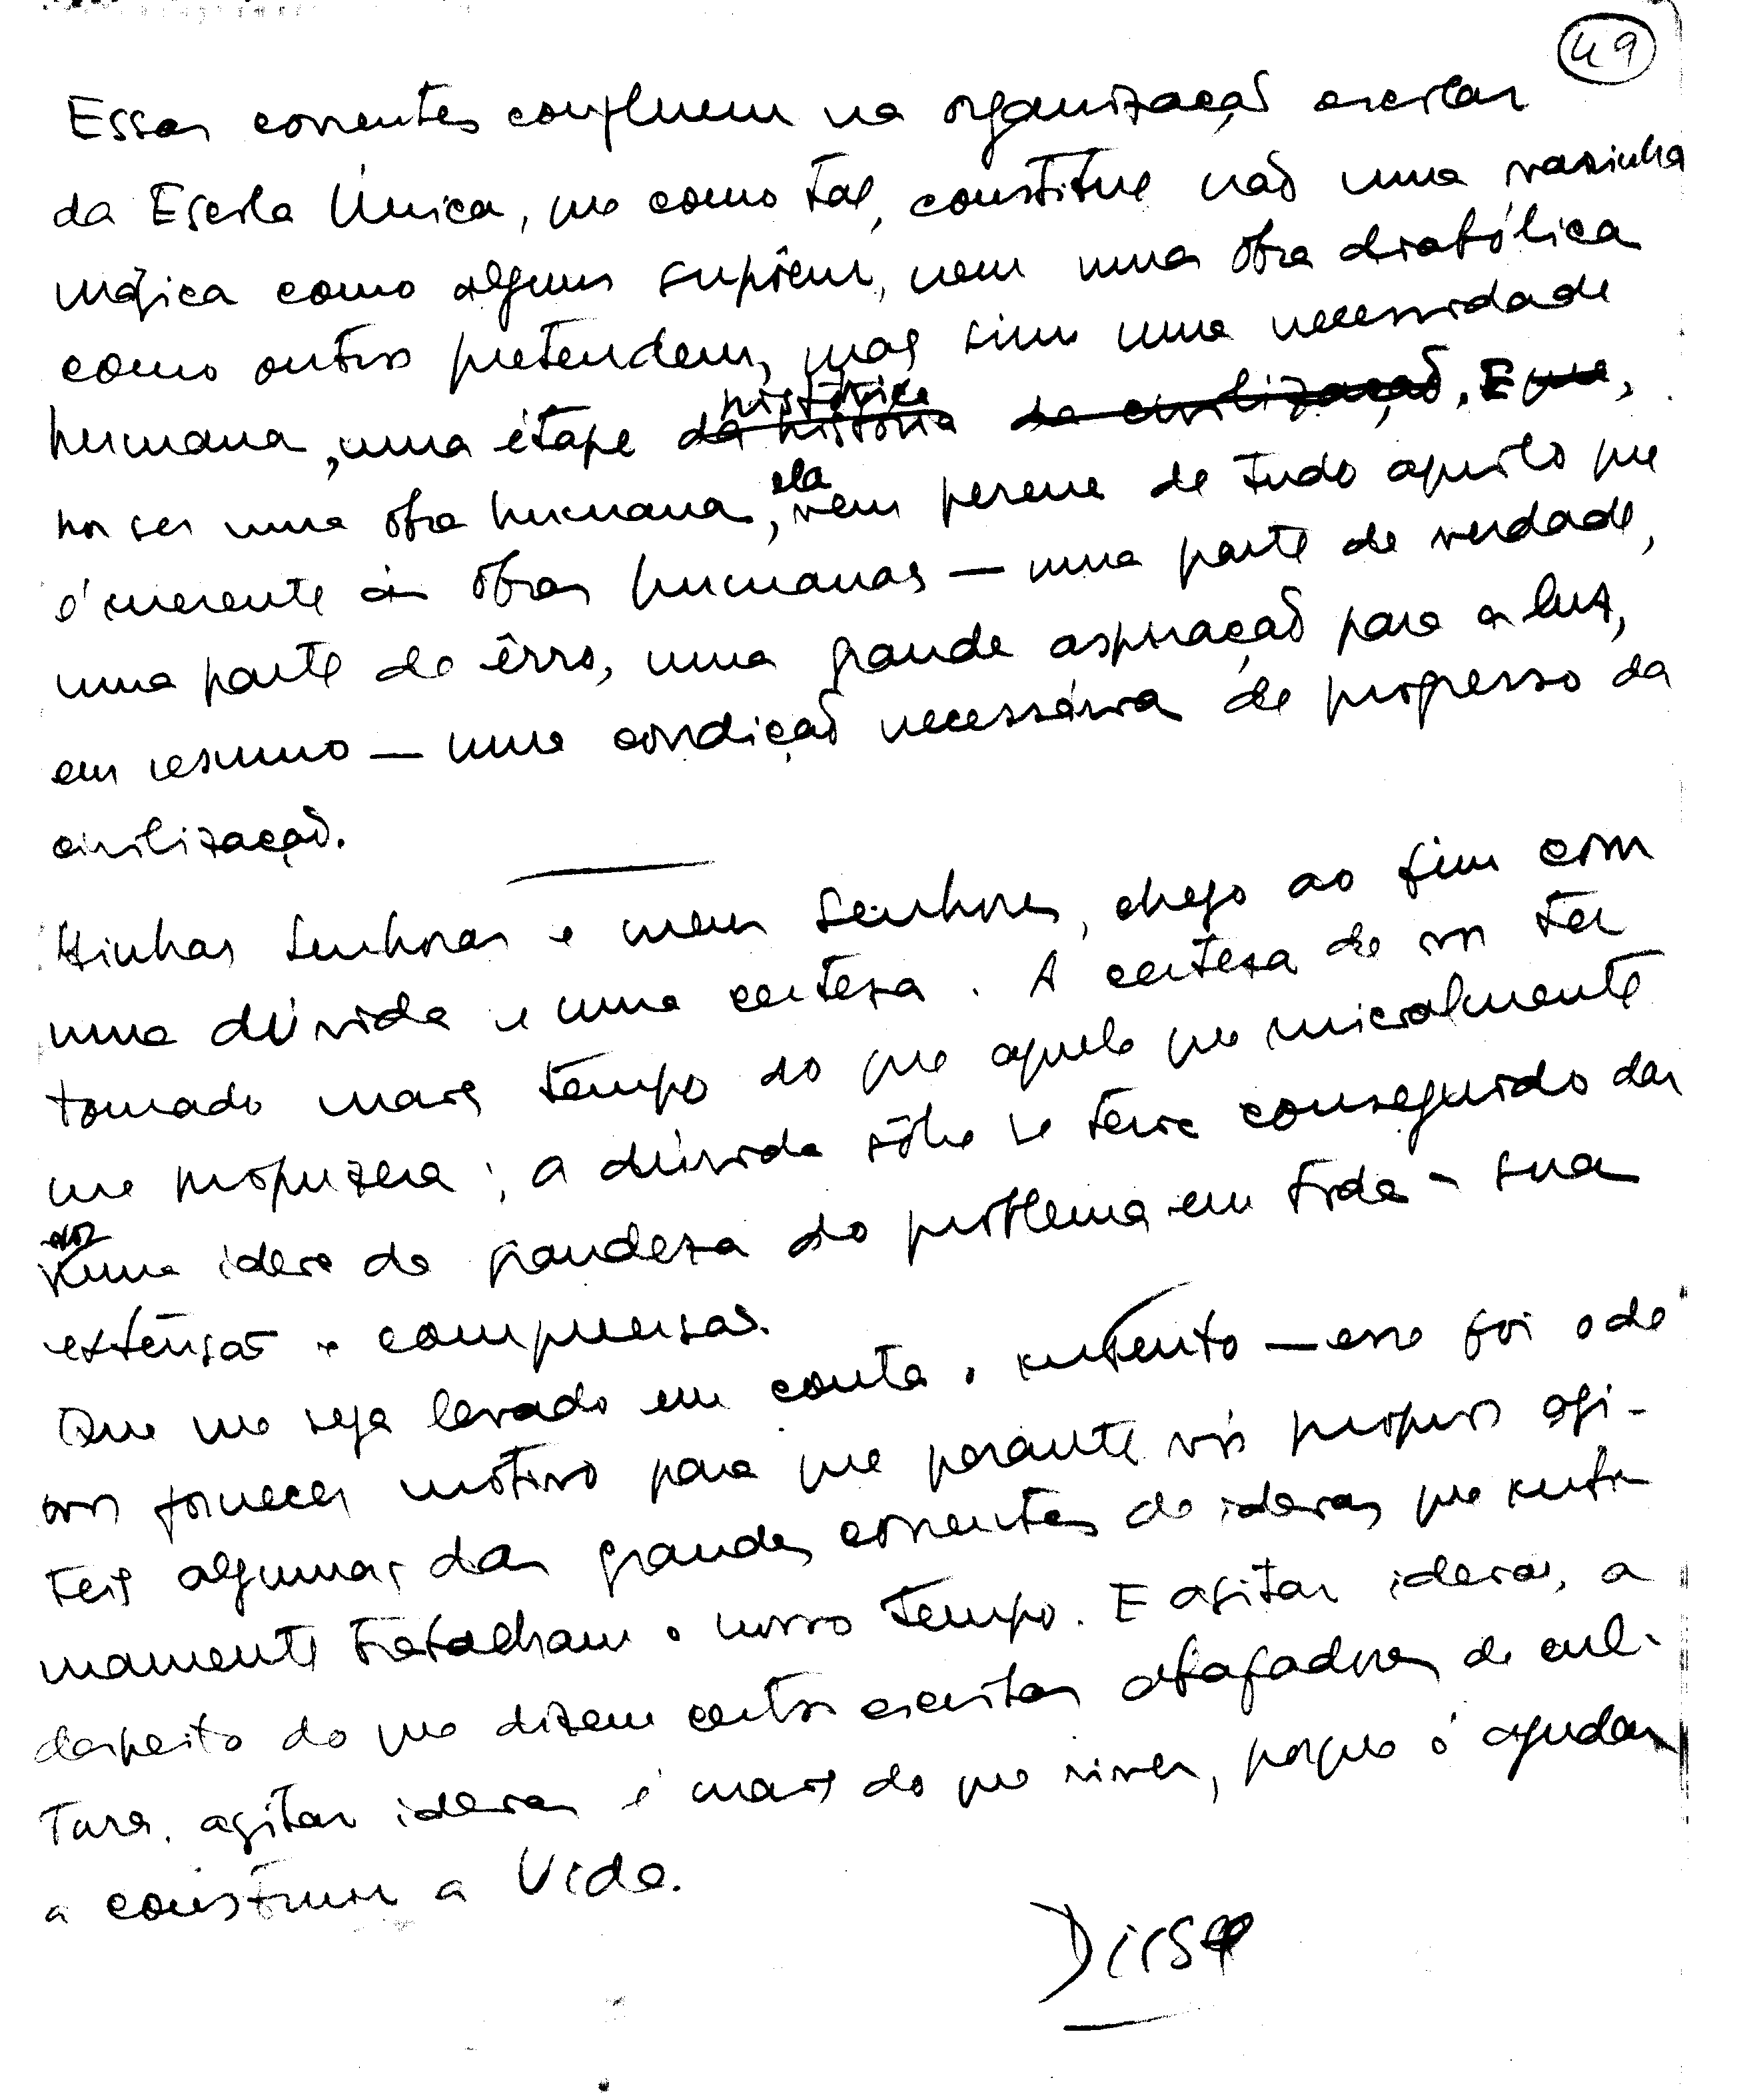 49
Essas correntes confluem na organização escolar
da Escola Única, que como tal, constitue não uma varinha
mágica como alguns supõem, nem uma obra diabólica
como outros pretendem, mas sim uma necessidade
histórica
humana, uma étape da história da civilização. E que,
ela
por ser uma obra humana, vem perene de tudo aquilo que
é inerente às obras humanas — uma parte de verdade,
uma parte de êrro, uma grande aspiração para a luz,
em resumo — uma condição necessária de progresso da
civilização.
Minhas Senhoras e meus Senhores, chego ao fim com
uma dúvida e uma certeza. A certeza de vos ter
tomado mais tempo do que aquele que inicialmente
me propuzera; a dúvida sôbre se teria conseguido dar
vos
uma ideia da grandeza do problema em toda a sua
extensão e compreensão.
Que me seja levado em conta o intento — esse foi o de
vos fornecer motivo para que perante vós próprios agi-
teis algumas das grandes correntes de ideias que inti-
mamente trabalham o nosso tempo. E agitar ideias, a
despeito do que dizem certos escribas abafadores de cul-
tura, agitar ideias é mais do que viver, porque é ajudar
a construir a Vida.
Disse